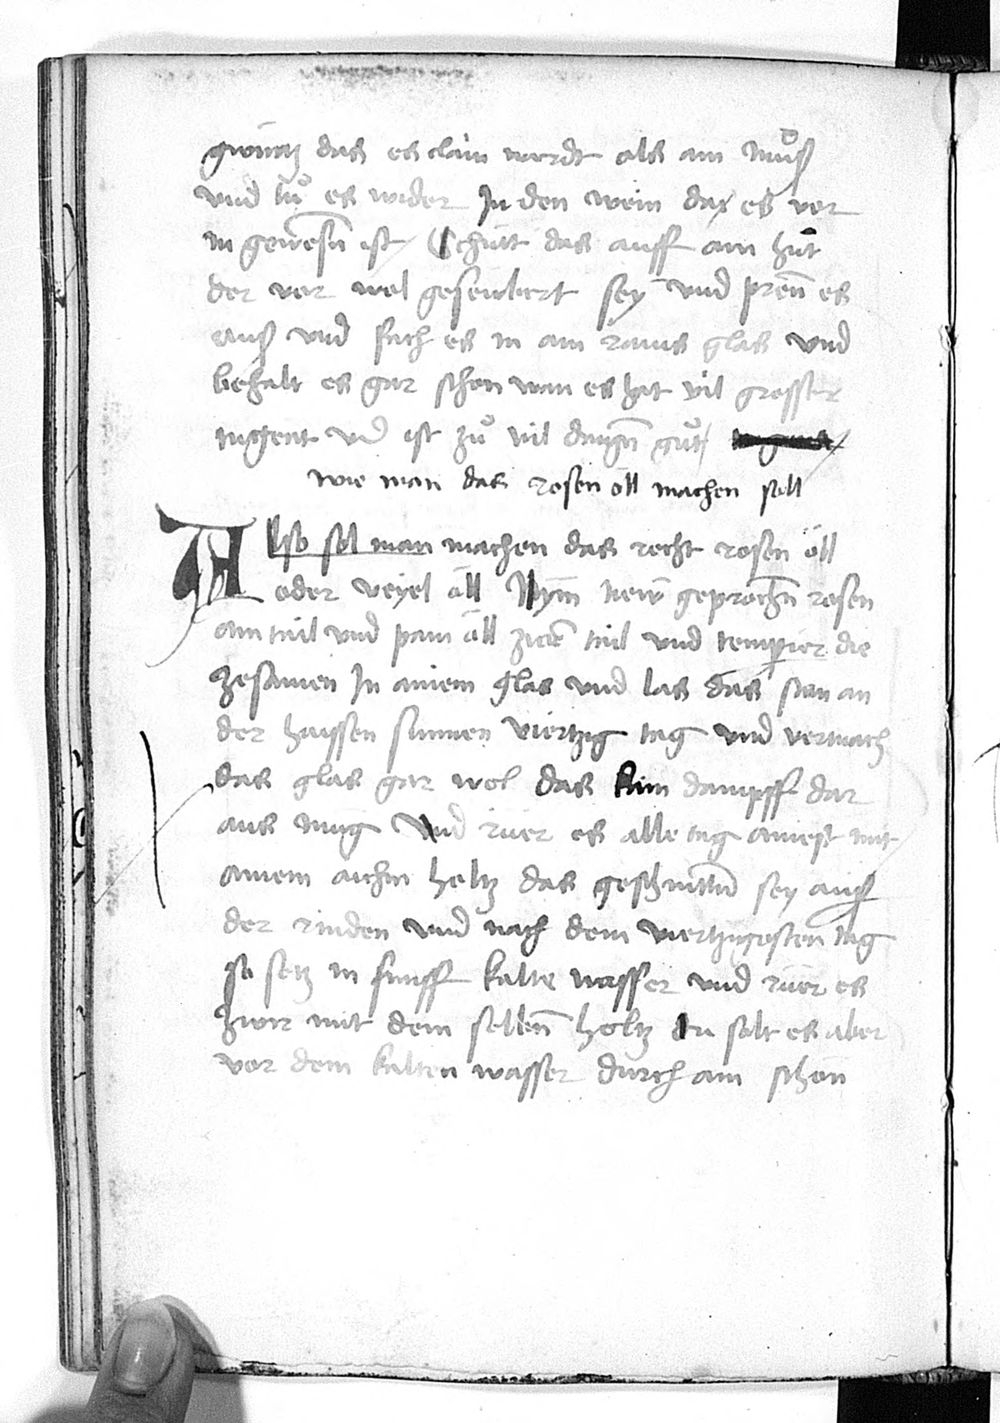 das es clain werdt als am muͦß
vnd tuͦ es wider In den wein dar es vor
in gewesn̄ ist Schütt das auff ain hůt
der vor wol geseubert sey vnd prēn es
auß vnd fach es in ain rains glas vnd
behalt es gar schon wan es hat vil grosser
tugent vn̄d ist zuͦ vil dingn̄ guͦt
wie man das rosen öll machen soll
Also sol man machen das recht rosen öll
oder veyel öll Nym̄ new geprochn̄ rosen
ain tail vnd pam öll zwen̄ tail vnd temperier die
zesamen In ainem glas vnd las das stan an
der haissen sunnen viertzig tag vnd vermach
das glas gar wol das kain dampff dar
aus mug Vnd rüer es alle tag ainest mit
ainem aichin holtz das geschnittn̄ sey auß
der rinden vnd nach dem viertzigosten tag
so setz in funff kalte wasser vnd rüer es
zwir mit dem selben̄ holtz du solt es aber
vor dem kalten wasser durch ain schon